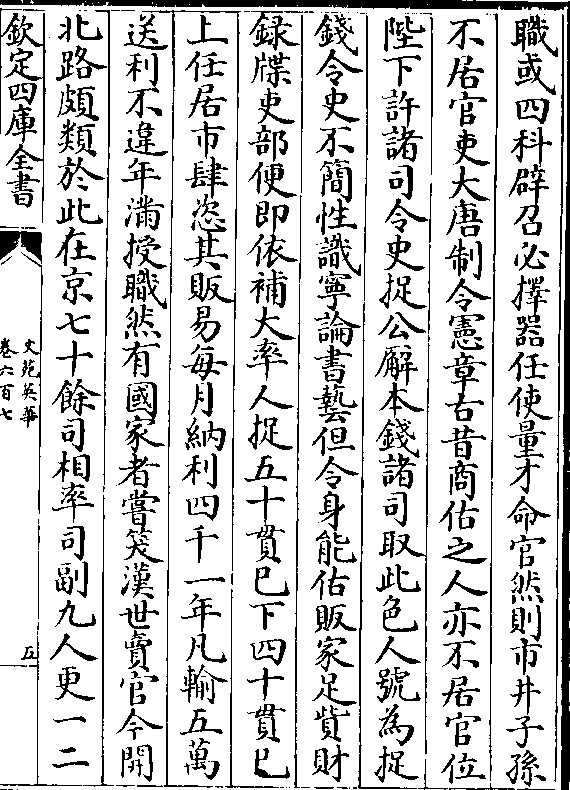 職或四科辟召必擇器任使量才命官然則市井子孫
不居官吏大唐制令憲章古昔商估之人亦不居官位
陛下許諸司令史捉公廨本錢諸司取此色人號為捉
錢令史不簡性識寧論書藝但令身能估販家足貲財
録牒吏部便即依補大率人捉五十貫已下四十貫已
上任居市肆恣其販易每月納利四千一年凡輸五萬
送利不違年滿授職然有國家者嘗笺漢世賣官今開
北路頗類於此在京七十餘司相率司副九人更一二
欽定四庫全書
文苑英華
卷六百七
五